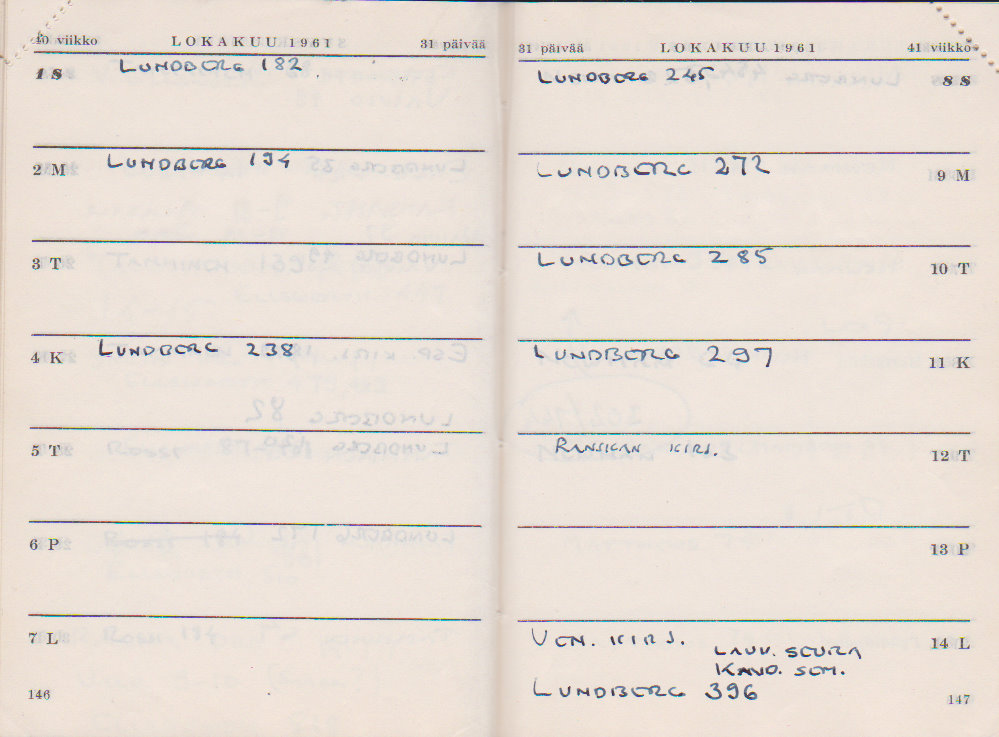 40 viikko LOKAKUU 1961 31 päivää
1 S LUNDBERG 182
2 M LUNDBERG 194
3 T
4 K LUNDBERG 238
5 T
6 P
7 L
146
31 päivää LOKAKUU 1961 41 viikko
LUNDBERG 245 8 S
LUNDBERG 272 9 M
LUNDBERG 285 10 T
LUNDBERG 297 11 K
RANSKAN KIRJ. 12 T
13 P
VEN. KIRJ. 14 L
LAUV. SEURA
SEM.
LUNDBERG 396
147